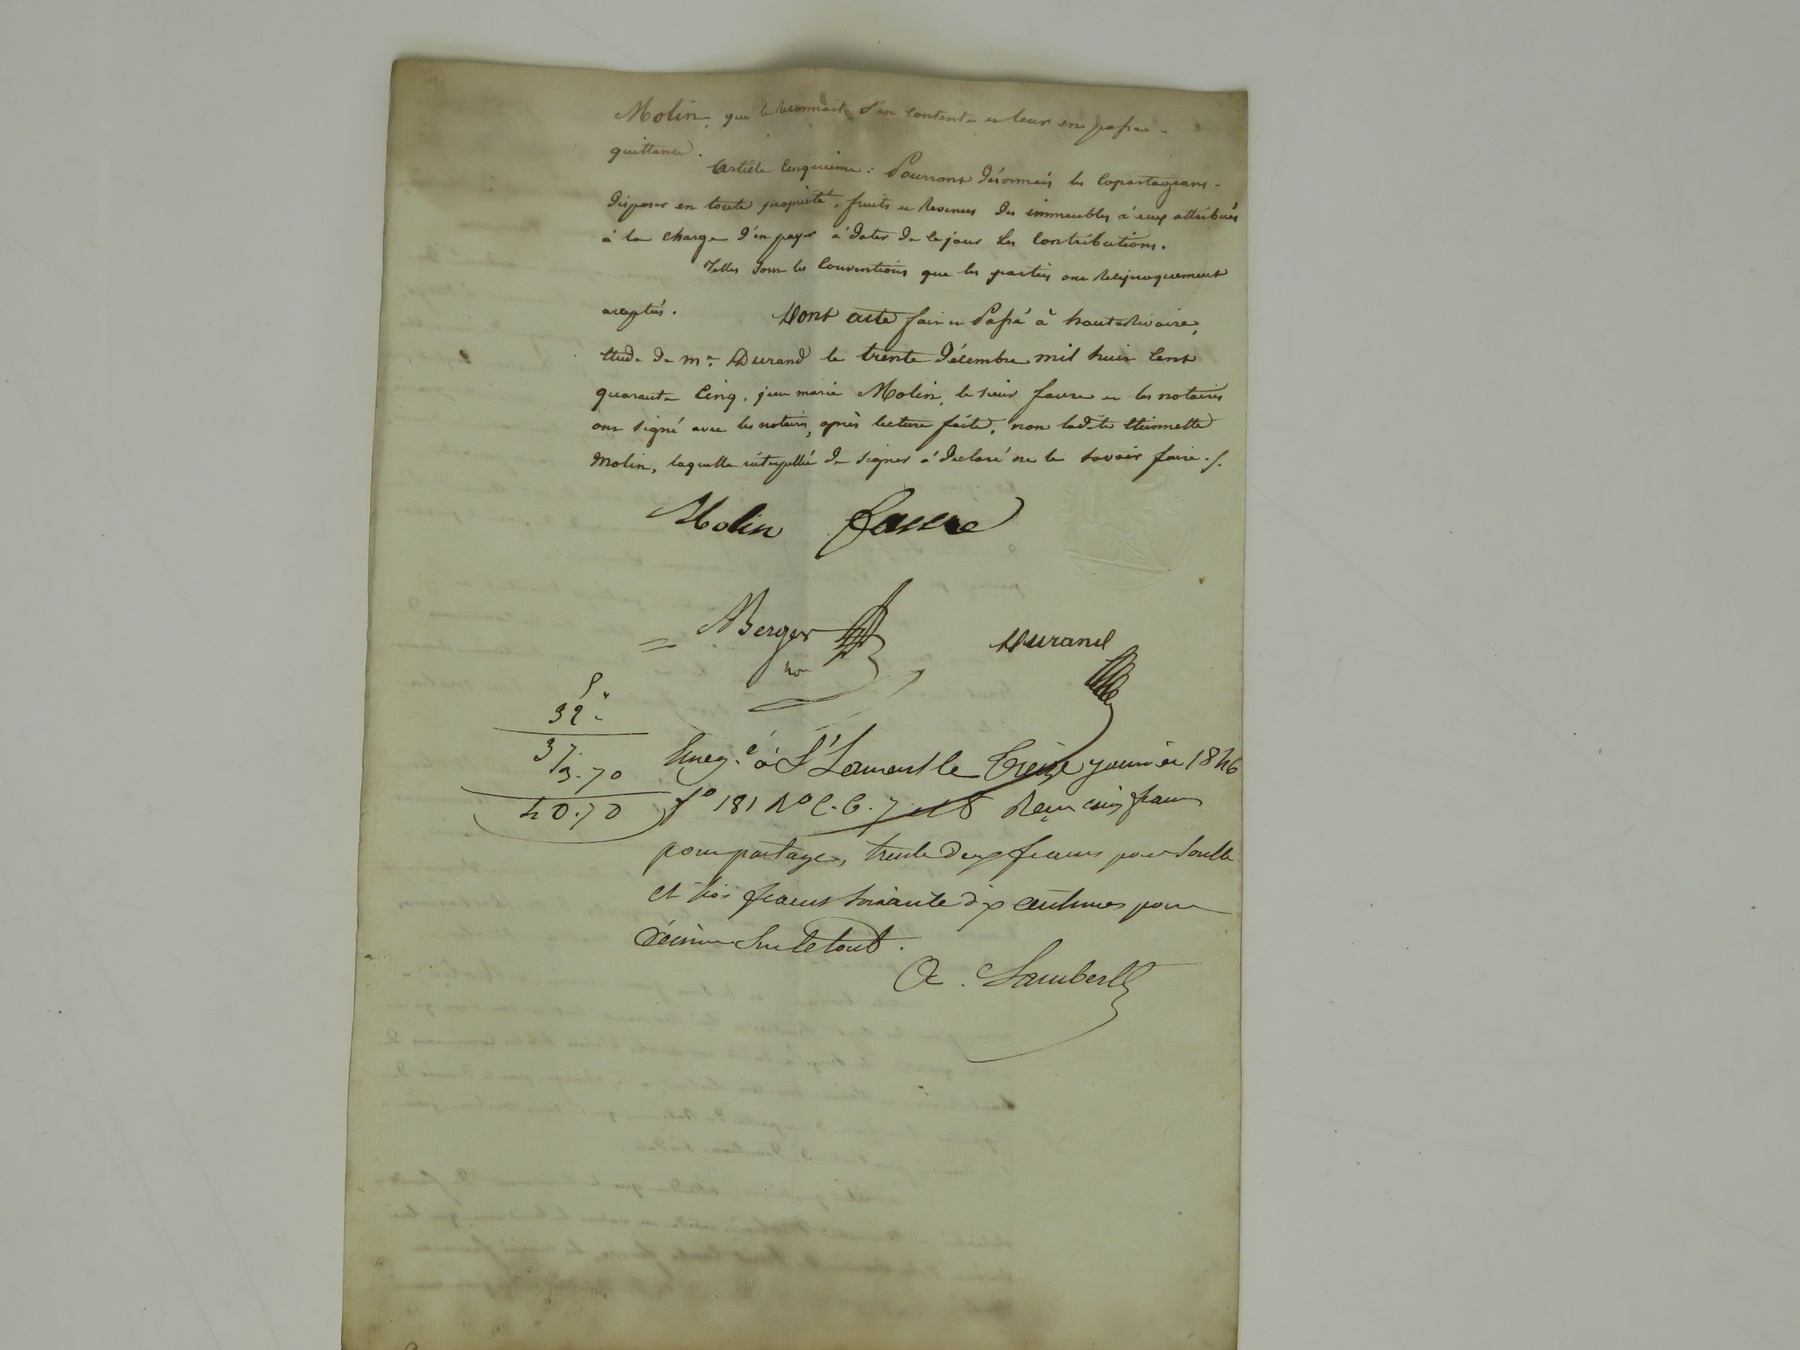 Molin, qui le reconnait s'en contente et leur en passe
quittance.
Article Cinquième : Pourront désormais les Copartageans
disposer en toute propriété, fruits et Revenus des immeubles à eux attribués
à la charge d'en payer à dater de ce jour les Contributions.
Telles sont les Conventions que les parties ont Réciproquement
acceptés. Dont acte fait et Passé à hauterivoire,
étude de me. Durand le trente décembre mil huit Cent
quarante Cinq, jean marie Molin, le sieur favre et les notaires
ont signé avec les notaires, après lecture faite, non ladite Etiennette
Molin, laquelle interpellée de signer a déclaré ne le savoir faire ./.
Molin favre
Berger Durand
nore
5
32 "
37.
3.70
40.70
Enreg.é à St Laurent le Treize janvier 1846
fo 181 Ro C. 6. 7 et 8 Reçu cinq francs
pour partage, trente deux francs pour soulte
et trois francs soixante dix centimes pour
décime sur le tout.
A. Lambert